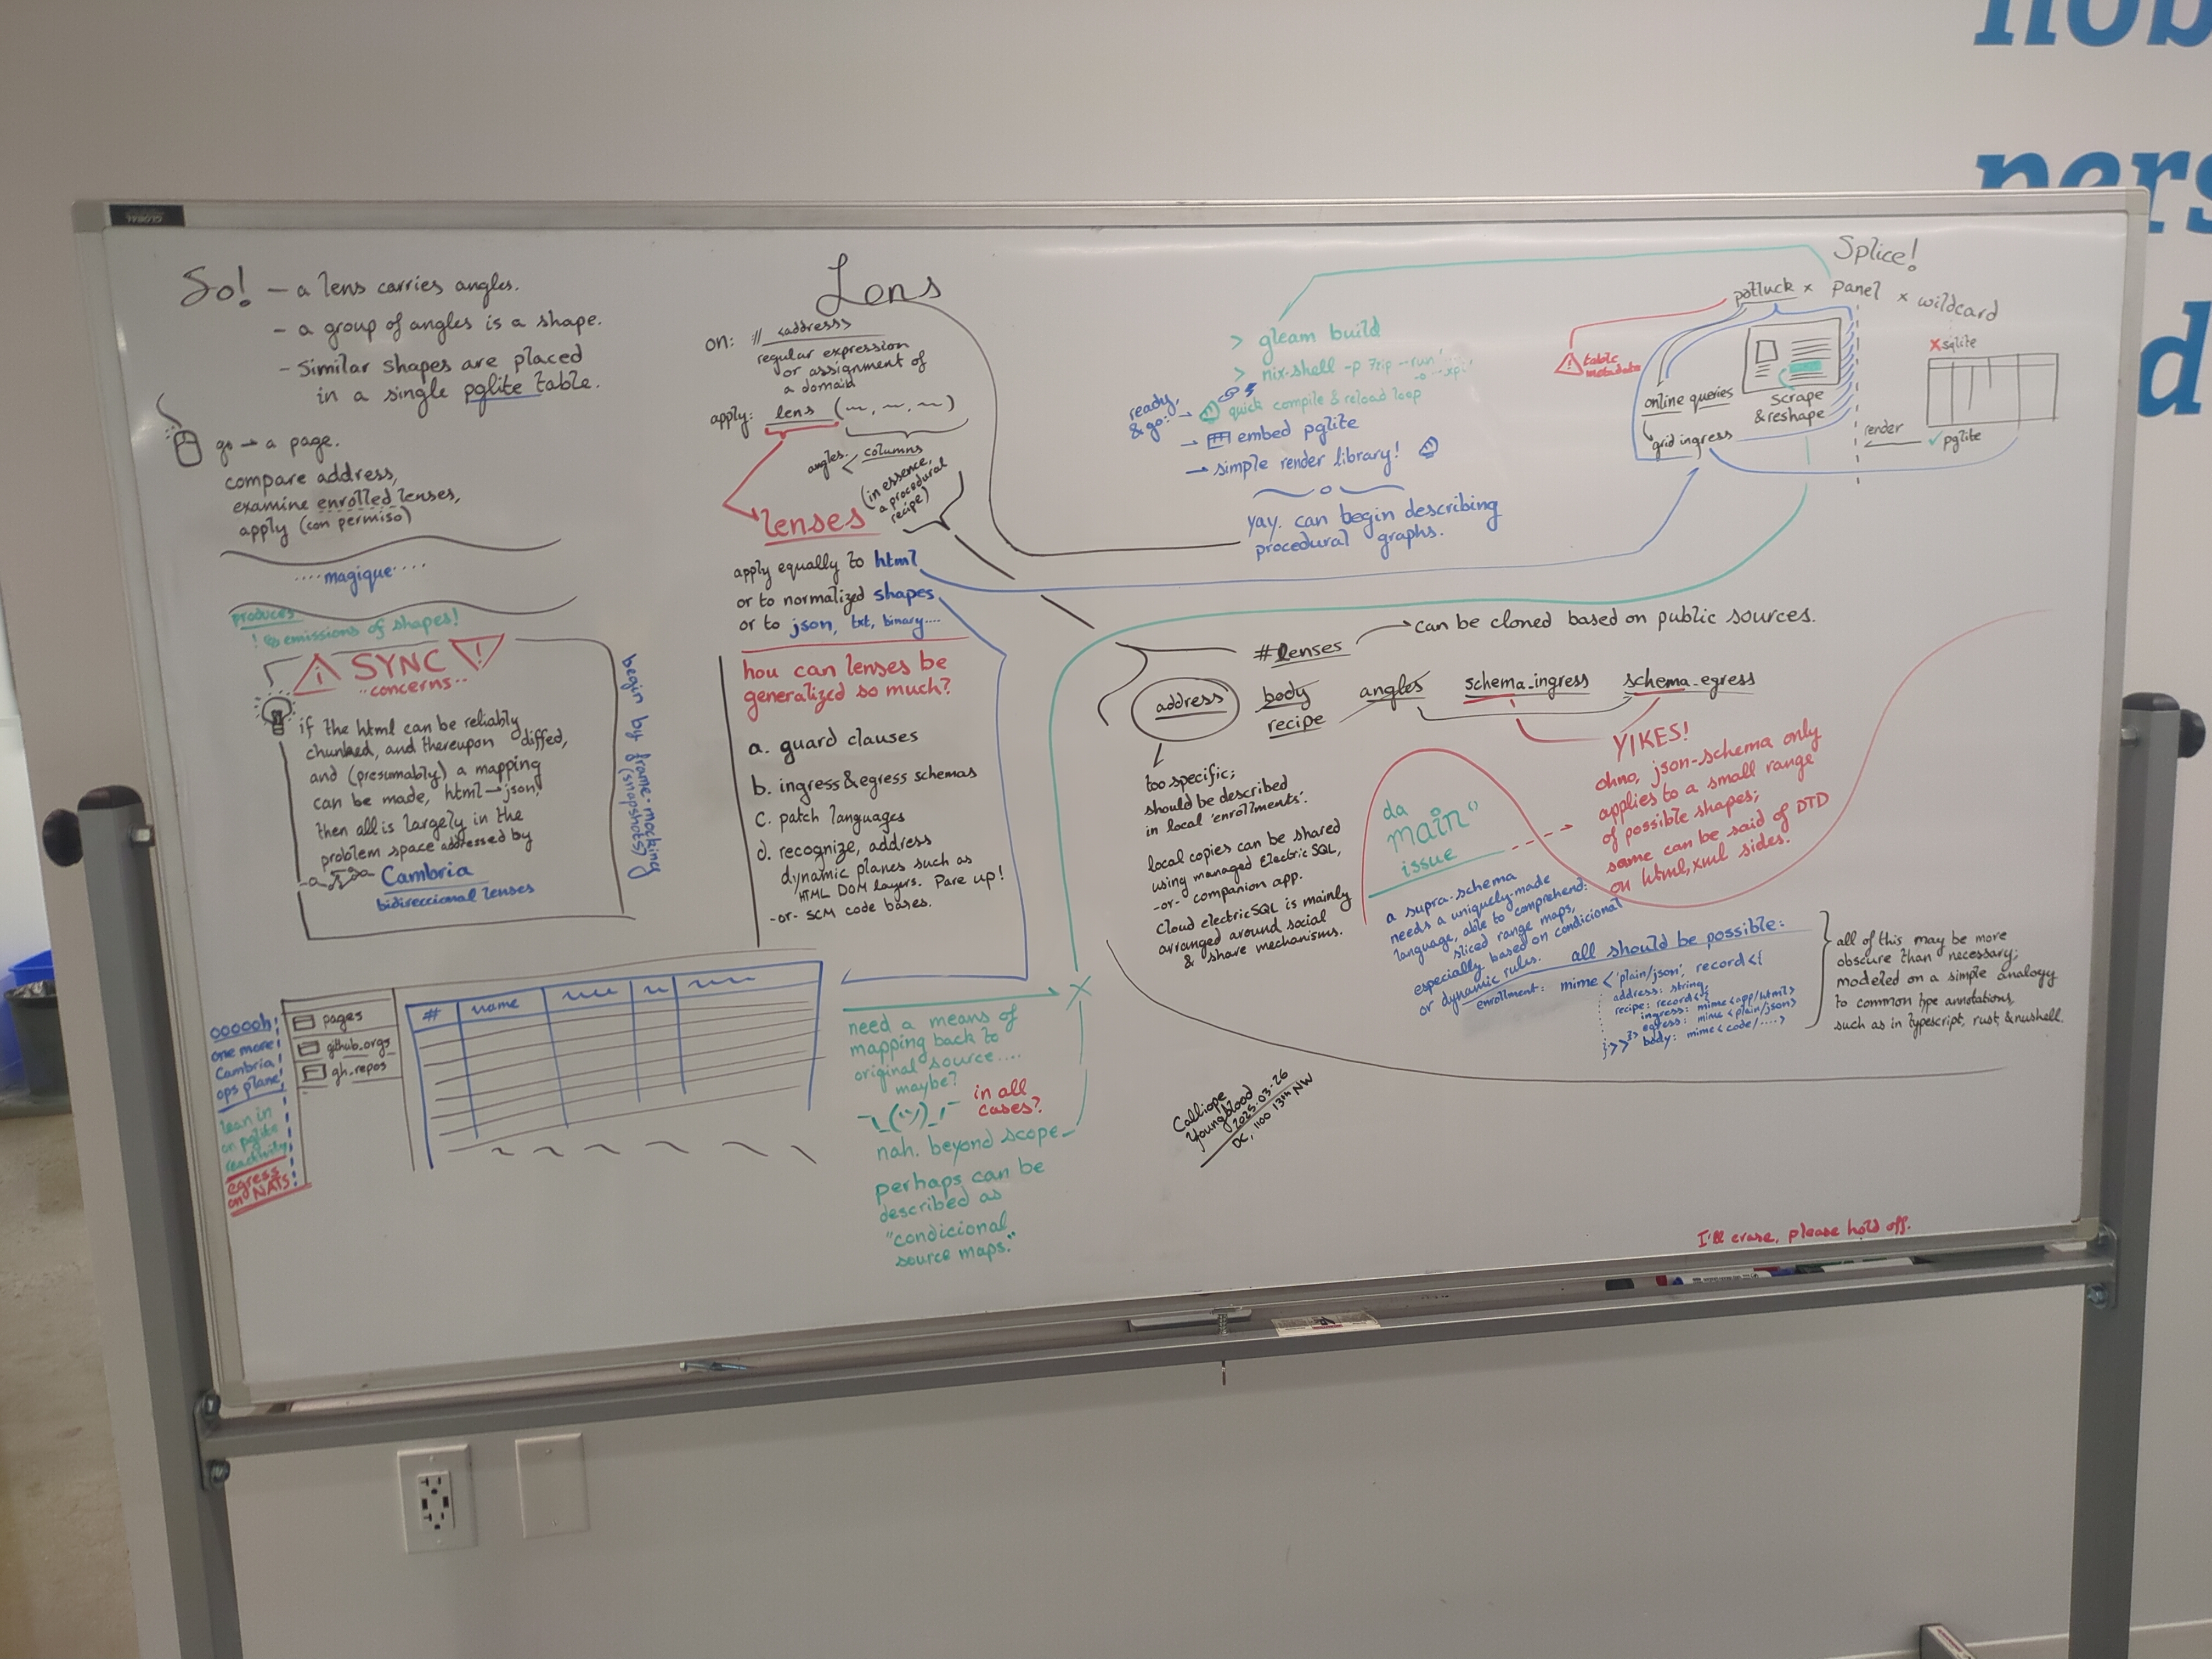 GLOBAL
nob
pers
d
So! - a lens carries angles.
- a group of angles is a shape.
- Similar shapes are placed
in a single pglite table.
go → a page.
compare address,
examine enrolled lenses,
apply (con permiso)
....magique....
produces
! emissions of shapes!
! SYNC !
..concerns..
if the html can be reliably
chunked, and thereupon diffed,
and (presumably) a mapping
can be made, html→json,
then all is largely in the
problem space addressed by
Cambria
bidireccional lenses
begin by frame-mocking
(snapshots)
Lens
on: // <address>
regular expression
or assignment of
a domain
apply: lens (~, ~, ~)
angles. < columns
(in essence,
a procedural
recipe)
lenses
apply equally to html
or to normalized shapes
or to json, txt, binary....
how can lenses be
generalized so much?
a. guard clauses
b. ingress & egress schemas
c. patch languages
d. recognize, address
dynamic planes such as
HTML DOM layers. Pare up!
-or- SCM code bases.
oooooh!
one more
Cambria
ops plane!
lean in
on pglite
reactivity
egress
on NATS!
pages
github_orgs
gh_repos
# name
need a means of
mapping back to
original source....
maybe?
¯\_(ツ)_/¯
in all
cases?
nah. beyond scope
perhaps can be
described as
"condicional
source maps."
> gleam build
> nix-shell -p 7zip --run
ready,
& go:
→ quick compile & reload loop
→ embed pglite
→ simple render library!
yay. can begin describing
procedural graphs.
Splice!
potluck × panel × wildcard
! table
metadata
online queries
grid ingress
scrape
& reshape
render
✗ sqlite
✓ pglite
#lenses → can be cloned based on public sources.
address body angles schema_ingress schema_egress
recipe
too specific;
should be described
in local 'enrollments'.
local copies can be shared
using managed ElectricSQL,
-or- companion app.
Cloud electricSQL is mainly
arranged around social
& share mechanisms.
da
main"
issue
YIKES!
ohno, json-schema only
applies to a small range
of possible shapes;
same can be said of DTD
on html, xml sides.
a supra-schema
needs a uniquely-made
language, able to comprehend:
sliced range maps,
especially based on condicional
or dynamic rules.
all should be possible:
enrollment: mime<'plain/json', record<{
address: string,
recipe: record<{
ingress: mime<app/html>
egress: mime<plain/json>
}>
body: mime<code/....>
}>>
all of this may be more
obscure than necessary;
modeled on a simple analogy
to common type annotations,
such as in typescript, rust, & nushell.
Calliope
Youngblood
2025-03-26
DC, 1100 13th NW
I'll erase, please hold off.